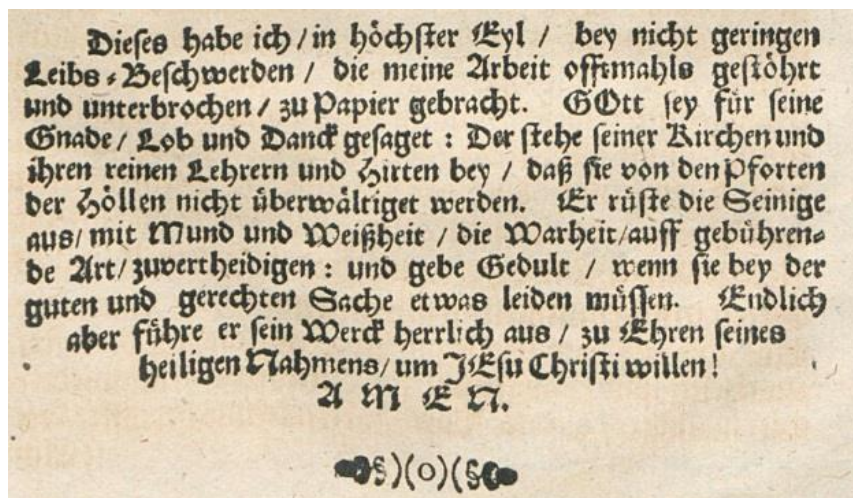 Dieses habe ich / in höchster Eyl / bey nicht geringen
Leibs-Beschwerden / die meine Arbeit offtmahls gestöhrt
und unterbrochen / zu Papier gebracht. GOtt sey für seine
Gnade / Lob und Danck gesaget : Der stehe seiner Kirchen und
ihren reinen Lehrern und Hirten bey / daß sie von den Pforten
der Höllen nicht überwältiget werden. Er rüste die Seinige
aus / mit Mund und Weißheit / die Warheit / auff gebühren-
de Art / zuvertheidigen : und gebe Gedult / wenn sie bey der
guten und gerechten Sache etwas leiden müssen. Endlich
aber führe er sein Werck herrlich aus / zu Ehren seines
heiligen Nahmens / um JEsu Christi willen !
A M E N.
§)(o)(§